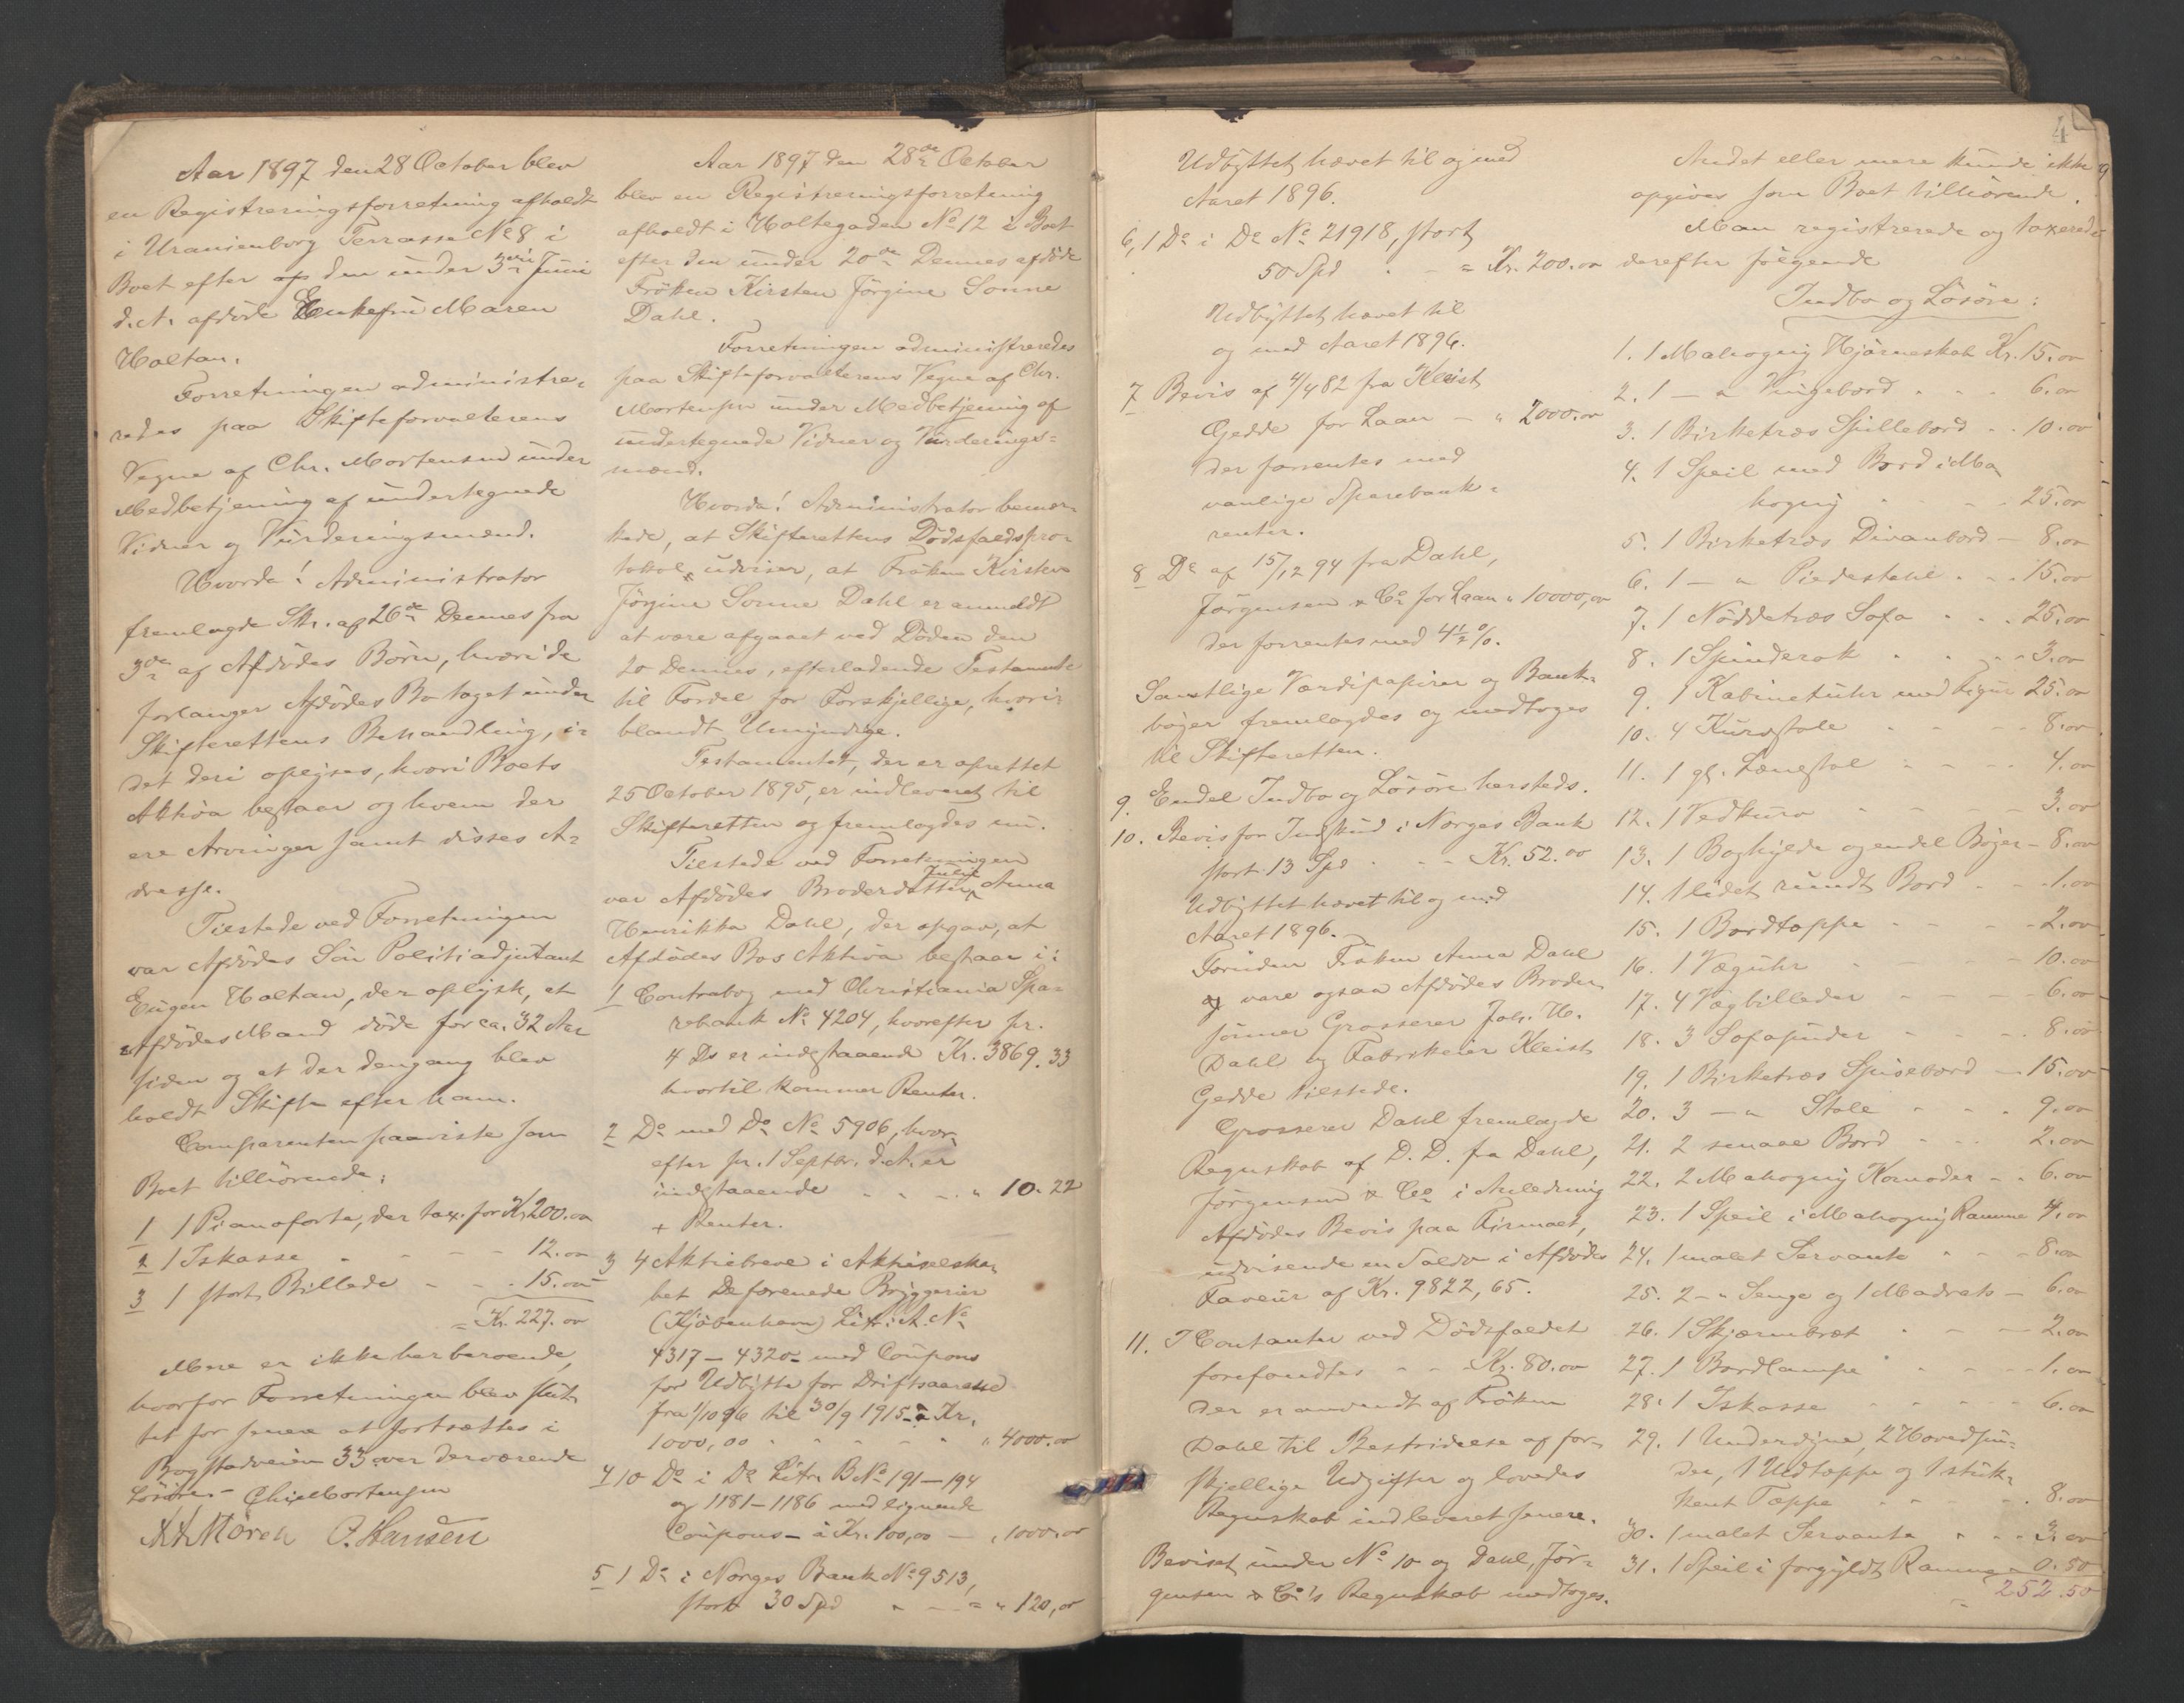 Aar 1897 den 28 October blev
en Registreringsforretning afholdt
i Uranienborg Terrasse No 8 i
Boet efter den under 3die Juni
d.A. afdöde Enkefru Maren
Holtan.
Forretningen administre-
redes paa Skifteforvalterens
Vegne af Chr. Mortensen under
Medbetjening af undertegnede
Vidner og Vurderingsmænd.
Hvorda! Administrator
fremlagde Skr. af 26de Dennes fra
3de af Afdödes Börn, hvori de
forlanger Afdödes Bo taget under
Skifterettens Behandling, i-
det deri oplyses, hvori Boets
Aktiva bestaar og hvem der
ere Arvinger samt disses A-
dresse.
Tilstede ved Forretningen
var Afdödes Sön Politiadjutant
Eugen Holtan, der oplyste, at
Afdödes Mand döde for ca. 32 Aar
siden og at der dengang blev
holdt Skifte efter ham.
Comparenten paaviste som
Boet tilhörende:
1 1 Pianoforte, der tax. for Kr 200.00
2 1 Iskasse - - - 12.00
3 1 stort Billede - - - 15.00
= Kr. 227.00
Mere er ikke her beroende,
hvorfor Forretningen blev slut-
tet for senere at fortsættes i
Bogstadveien 33 over derværende
Lösöre. - Chr. Mortensen
A. A. Mörch P. Hansen
Aar 1897 den 28de October
blev en Registreringsforretning
afholdt i Holtegaden No 12 i Boet
efter den under 20de Dennes afdöde
Fröken Kirsten Jörgine Sonne
Dahl.
Forretningen administreredes
paa Skifteforvalterens Vegne af Chr.
Mortensen under Medbetjening af
undertegnede Vidner og Vurderings-
mænd.
Hvorda! Administrator bemær-
kede, at Skifterettens Dödsfaldspro-
tokol udviser, at Fröken Kirsten
Jörgine Sonne Dahl er anmeldt
at være afgaaet ved Döden den
20 Dennes, efterladende Testamente
til Fordel for Forskjellige, hvori-
blandt Umyndige.
Testamentet, der er oprettet
25 October 1895, er indleveret til
Skifteretten og fremlagdes nu.
Tilstede ved Forretningen
var Afdödes Broderdatter Julie Anna
Henrikka Dahl, der opgav, at
Afdödes Bos Aktiva bestaar i:
1 Contrabog med Christiania Spa-
rebank No 4204, hvorefter pr.
4 Ds er indestaaende Kr. 3869.33
hvortil kommer Renter.
2 Do med Do No 5906, hvor-
efter pr. 1 Septbr. d.A. er
indestaaende - - - " 10.22
+ Renter.
3 4 Aktiebreve i Aktieselska-
bet De forenede Bryggerier
(Kjöbenhavn) Litr. A. No
4317 - 4320 - med Coupons
for Udbytte for Driftsaarene
fra 1/10 96 til 30/9 1915 - à Kr.
1000,00 - - - " 4000.00
4 10 Do i Do Litr. B No 191 - 194
og 1181 - 1186 med lignende
Coupons - à Kr. 100,00 - " 1000.00
5 1 Do i Norges Bank No 9513,
stort 30 Spd - - = " 120,00
Udbyttet hævet til og med
Aaret 1896.
6, 1 Do i Do No 21918, stort
50 Spd - - = Kr. 200.00
Udbyttet hævet til
og med Aaret 1896.
7 Bevis af 4/4 82 fra Kleist
Gedde for Laan - " 2000.00
der forrentes med
vanlige Sparebank-
renter.
8 Do af 15/12 94 fra Dahl,
Jörgensen & Co for Laan " 10000,00
der forrentes med 4½ %.
Samtlige Værdipapirer og Bank-
böger fremlagdes og medtoges
til Skifteretten.
9. Endel Indbo og Lösöre hersteds.
10. Bevis for Indskud i Norges Bank
stort 13 Spd - - Kr. 52.00
Udbyttet hævet til og med
Aaret 1896.
Foruden Fröken Anna Dahl
vare ogsaa Afdödes Broder-
sönner Grosserer Johs. H.
Dahl og Fabrikeier Kleist
Gedde tilstede.
Grosserer Dahl fremlagde
Regnskab af D.D. fra Dahl,
Jörgensen & Co i Anledning
Afdödes Bevis paa Firmaet,
udvisende en Saldo i Afdödes
Faveur af Kr. 9822,65.
11. I Contanter ved Dödsfaldet
forefandtes - - Kr. 80.00
der er anvendt af Fröken
Dahl til Bestridelse af for-
skjellige Udgifter og lovedes
Regnskab indleveret senere.
Beviset under No 10 og Dahl, Jör-
gensen & Co's Regnskab medtoges.
4
Andet eller mere kunde ikke
opgives som Boet tilhörende.
Man registrerede og taxerede
derefter fölgende
Indbo og Lösöre:
1. 1 Mahogny Hjörneskab Kr. 15.00
2. 1 - " Vingebord - - 6.00
3. 1 Birketræs Spillebord - - 10.00
4. 1 Speil med Bord i Ma
hogny - - - 25.00
5. 1 Birketræs Divanbord - 8.00
6. 1 - " Piedestahl - - 15.00
7. 1 Nöddetræs Sofa - - 25.00
8. 1 Spinderok - - - 3.00
9. 1 Kabinetuhr med Figur 25.00
10. 4 Kurvstole - - - 8.00
11. 1 gl. Lænestol - - - 4.00
12. 1 Vedkurv - - - 3.00
13. 1 Boghylde og endel Böger - 8.00
14. 1 lidet rundt Bord - - 1.00
15. 1 Bordtæppe - - - 2.00
16. 1 Væguhr - - - 10.00
17. 4 Vægbilleder - - - 6.00
18. 3 Sofapuder - - - 8.00
19. 1 Birketræs Spisebord - 15.00
20. 3 - " Stole - - - 9.00
21. 2 smaae Bord - - - 2.00
22. 2 Mahogny Komoder - - 6.00
23. 1 Speil i Mahogny Ramme 4.00
24. 1 malet Servante - - 8.00
25. 2 - " Senge og 1 Madrats - 6.00
26. 1 Skjærmbræt - - - 2.00
27. 1 Bordlampe - - - 1.00
28. 1 Iskasse - - - 6.00
29. 1 Underdyne, 2 Hovedpu-
der, 1 Uldtæppe og 1 stuk-
kent Tæppe - - - 8.00
30. 1 malet Servante - - 3.00
31. 1 Speil i forgyldt Ramme - 0.50
= 252.50